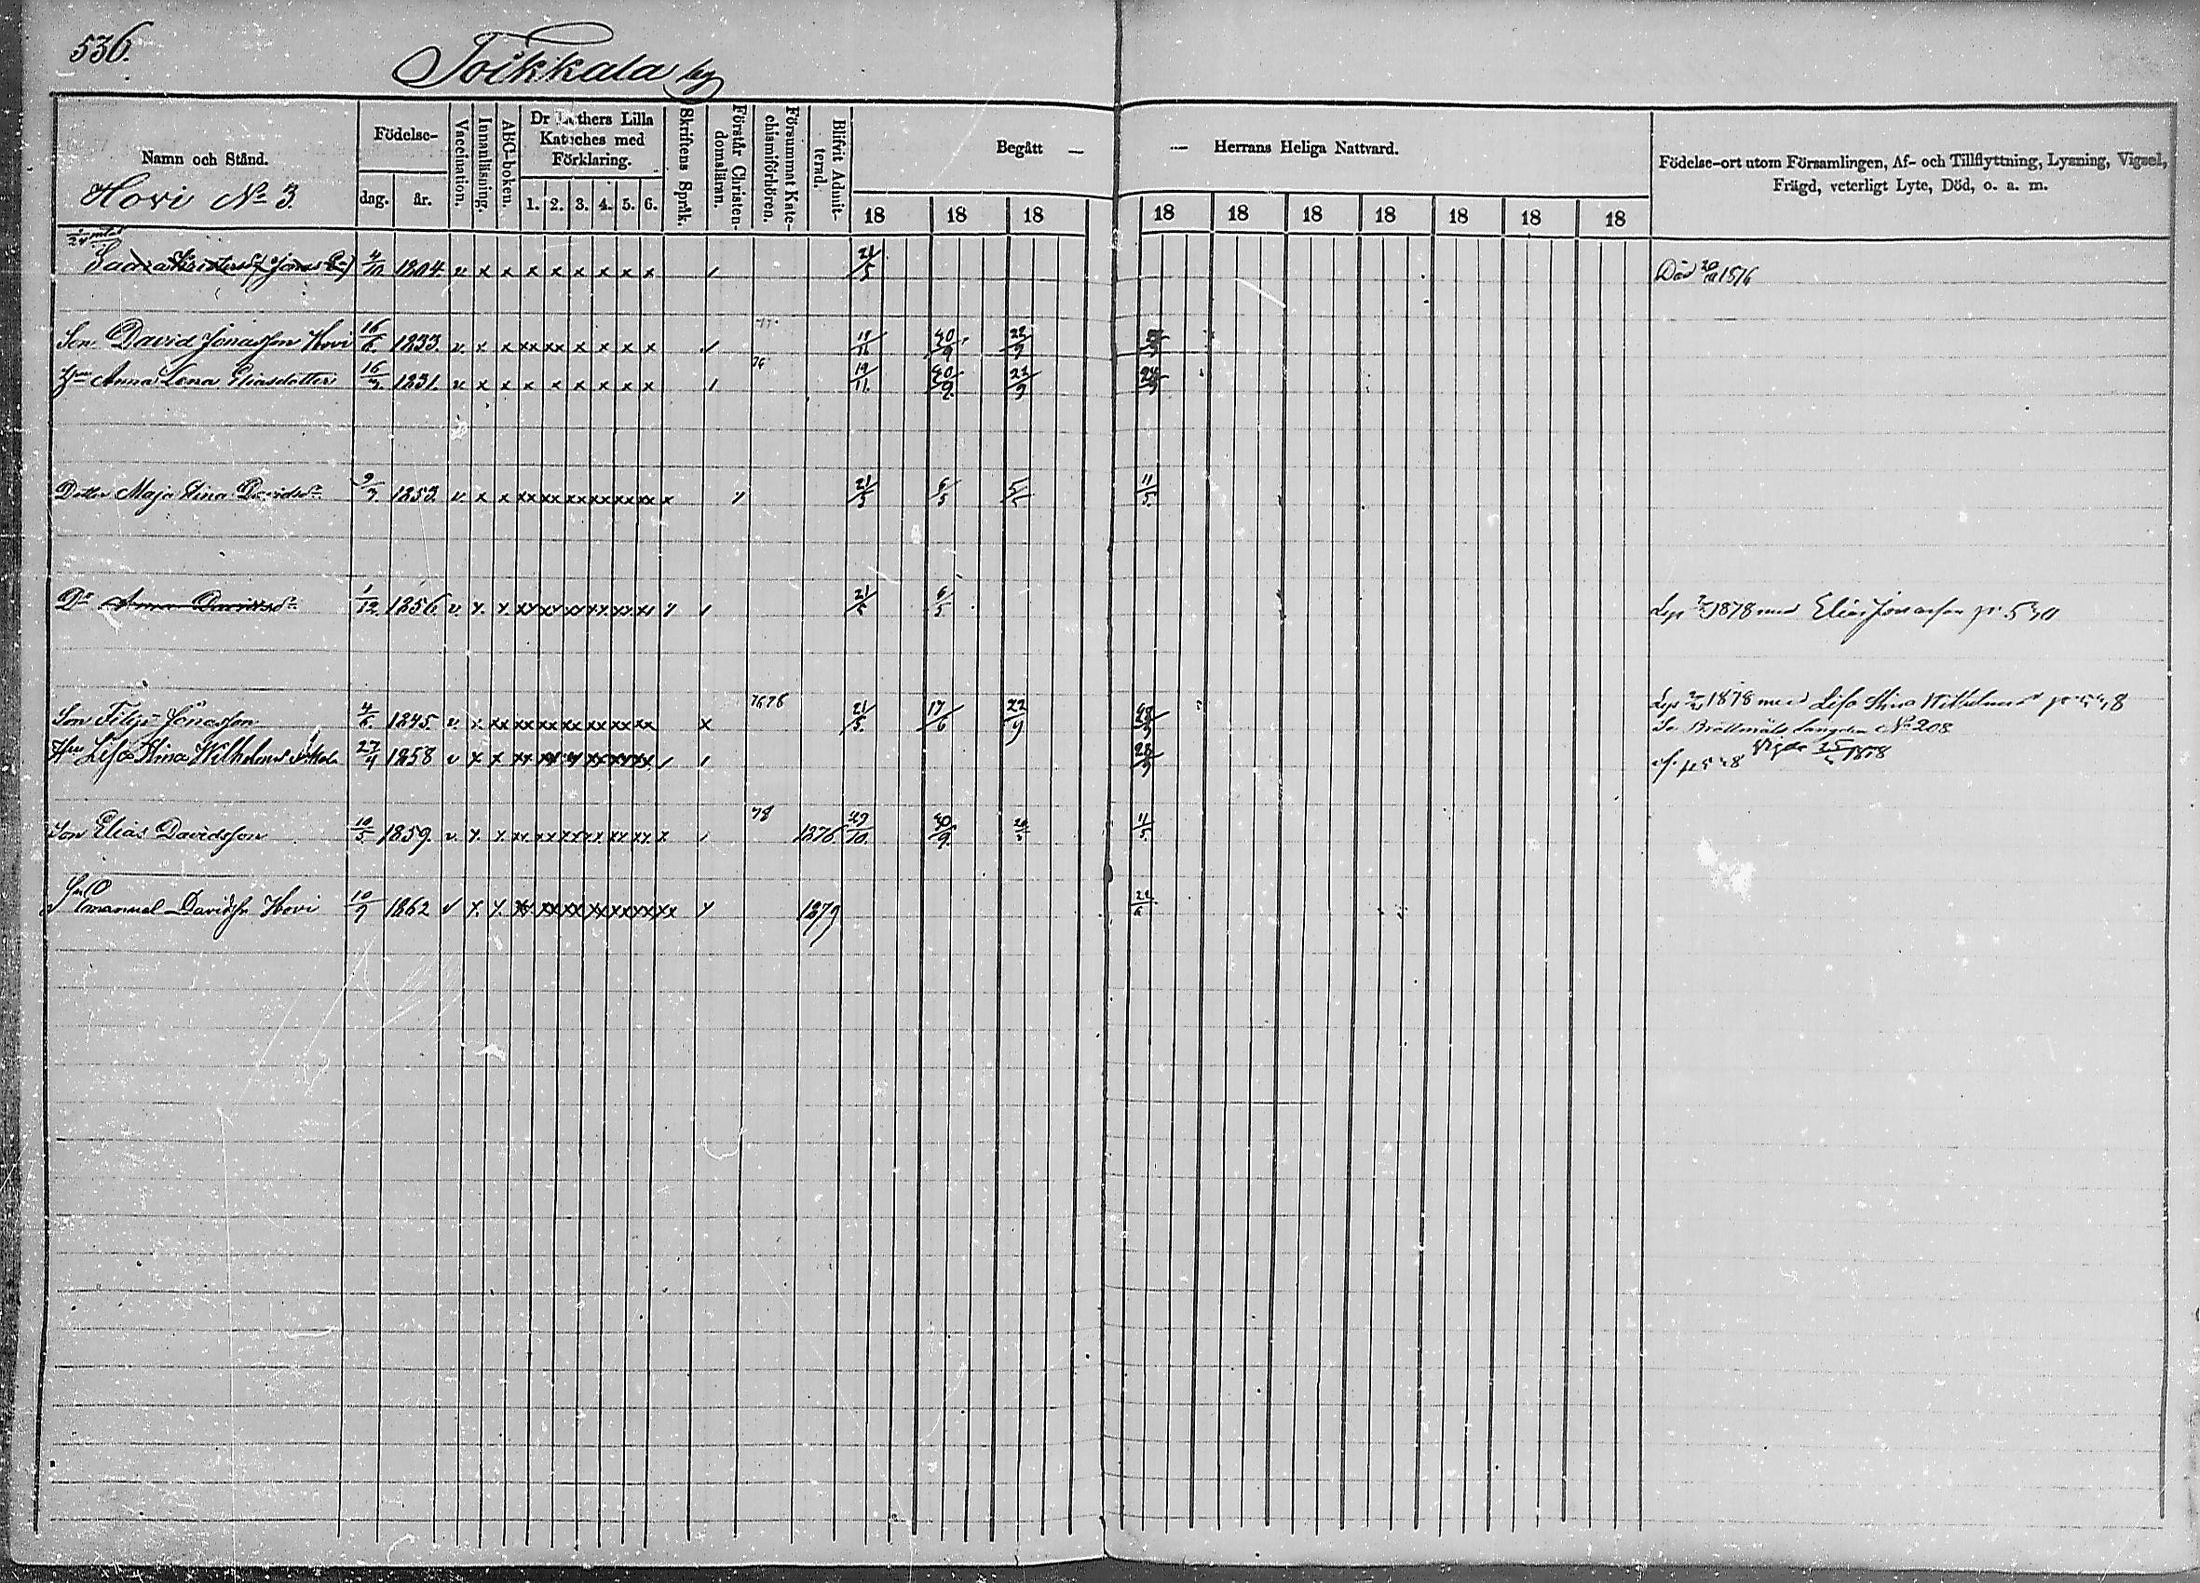 536.
Toikkala by
Namn och Stånd.
Hovi No 3.
Födelse-
dag. år.
Vaccination.
Innanläsning.
ABC-boken.
Dr Luthers Lilla
Kateches med
Förklaring.
1. 2. 3. 4. 5. 6.
Skriftens Språk.
Förstår Christen-
domsläran.
Försummat Kate-
chismiförhören.
Blifvit Admit-
terad.
Begått — — Herrans Heliga Nattvard.
18 18 18 18 18 18 18 18 18 18
Födelse-ort utom Församlingen, Af- och Tillflyttning, Lysning, Vigsel,
Frägd, veterligt Lyte, Död, o. a. m.
4/10 1804 v x x x x x x x x 21/5 Död 1876
Son David Jonasson Hovi 16/6 1833. v. x x xx xx x x x x 30/9 22/9
Hu Anna Lena Eliasdotter 16/7 1831. v x x x x x x x x 76 19/11 30/9 22/9
Dotter Maja Stina Davidsdr 9/7 1853 v x x xx xx xx xx xx xx x 21/5 6/5 11/5
Dr Anna Davidsdr 1/12 1856 v. x x xx xx xx xx xx xx 21/5 6/5 1878 med Elias Jonasson
Son Filip Jonasson 4/6 1845 v. x xx xx xx xx xx xx xx x 76 78 21/5 17/6 22/9 1878 med Lisa Stina Wilhelmsd
No 208
Hu Lisa Stina Wilhelmsd 27/4 1858 v x x xx xx xx xx xx xx 28/9 Vigde 1878
Son Elias Davidsson 10/5 1859. v. x x xx xx xx xx xx xx x 78 1876 29/10 30/9 11/5
Son Emanuel Davidsn Hovi 10/9 1862 v x x xx xx xx xx xx xx x 1879 22/6